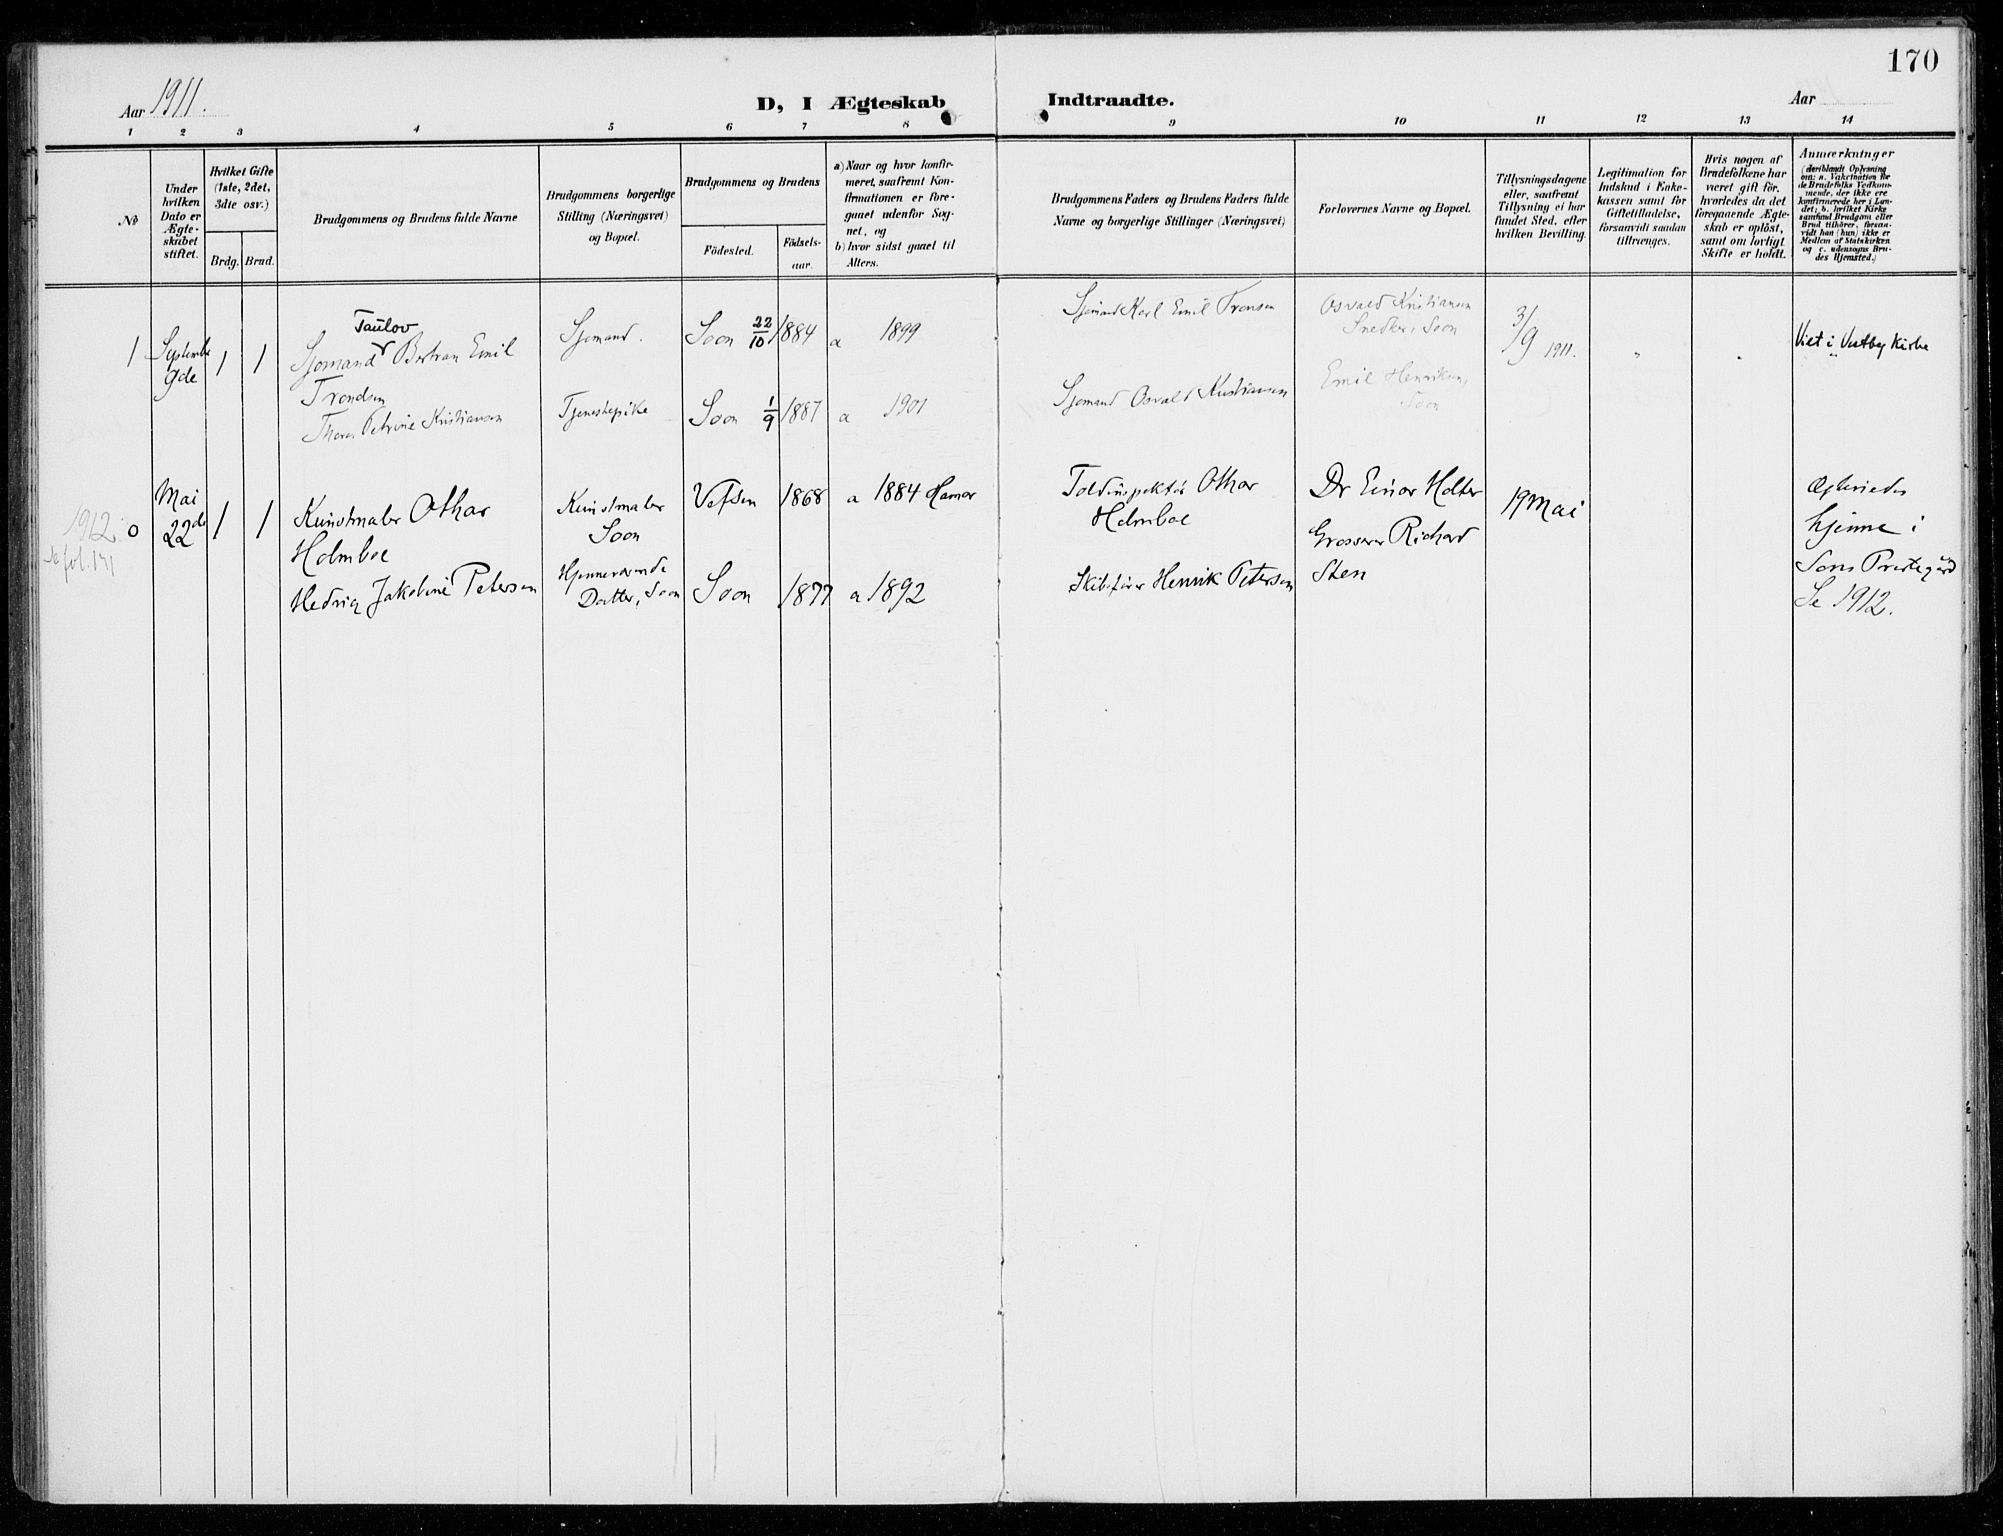 170
Aar 1911.
D, I Ægteskab Indtraadte.
Aar
1 2 3 4 5 6 7 8 9 10 11 12 13 14
No
Under
hvilken
Dato er
Ægte-
skabet
stiftet.
Hvilket Gifte
(1ste, 2det,
3dte osv.)
Brdg. Brud.
Brudgommens og Brudens fulde Navne
Brudgommens borgerlige
Stilling (Næringsvei)
og Bopæl.
Brudgommens og Brudens
Födested.
Födsels-
aar.
a) Naar og hvor konfir-
meret, saafremt Kon-
firmationen er fore-
gaaet udenfor Sog-
net, og
b) hvor sidst gaaet til
Alters.
Brudgommens Faders og Brudens Faders fulde
Navne og borgerlige Stillinger (Næringsvei)
Forlovernes Navne og Bopæl.
Tillysningsdagene
eller, saafremt
Tillysning ei har
fundet Sted, efter
hvilken Bevilling.
Legitimation for
Indskud i Enke-
kassen samt for
Giftetilladelse,
forsaavidt saadan
tiltrænges.
Hvis nogen af
Brudefolkene har
været gift för,
hvorledes da det
foregaaende Ægte-
skab er oplöst,
samt om lovligt
Skifte er holdt.
Anmærkninger
(deriblandt Oplysning
om: a. Vakcination for
de Brudefolks Vedkom-
mende, der ikke ere
konfirmerede her i Lan-
det; b. hvilket Kirke
samfund Brudgom eller
Brud tilhörer, forsaa-
vidt han (hun) ikke er
Medlem af Statskirken
og c. udensogns Bru-
des Hjemsted.)
1
September
9de
1 1
Taulov
Sjömand Bertran Emil
Trondsen
Sjömand.
Soon 22/10 1884
a 1899
Sjömand Karl Emil Tronsen
Osvald Kristiansen
Snedker, Soon
3/9 1911.
Viet i Vestby Kirke
Petrine Kristiansen
Tjenestepike
Soon 1/9 1887
a 1901
Sjömand Osvald Kristiansen
Emil Henriksen,
Soon
1912. 0
Se fol. 171
Mai
22de
1 1
Kunstmaler Othar
Holmboe
Kunstmaler
Soon
Vefsen 1868
a 1884 Hamar
Toldinspektör Othar
Holmboe
Dr Einar Holter
Grosserer Richard
Sten
19 Mai
hjemme i
Sons Prestegård
Se 1912.
Hedvig Jakobine Petersen
Hjemmeværende
Datter, Soon
Soon 1877
a 1892
Skibsförer Henrik Petersen